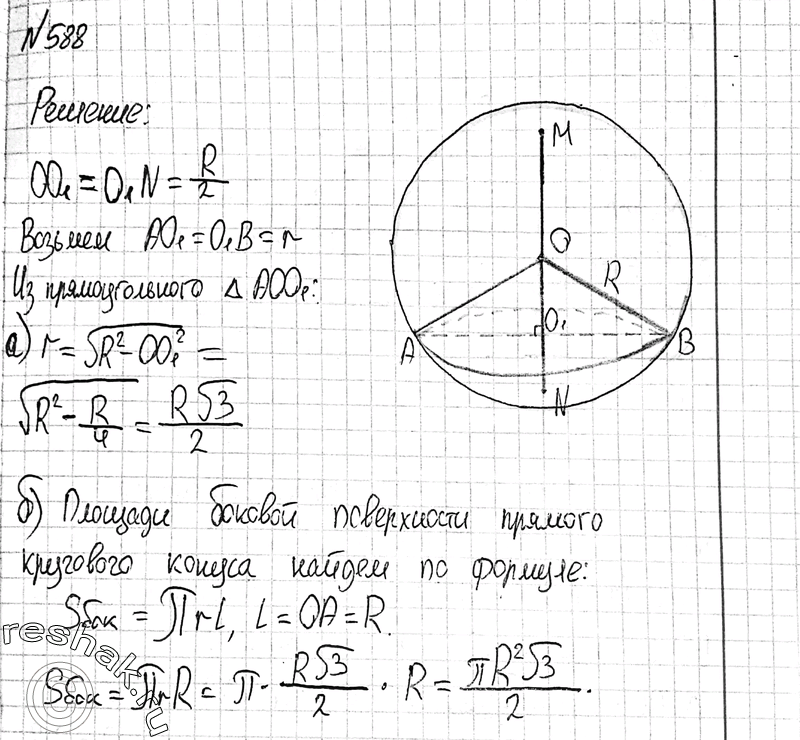 №588
Решение:
OO₁ = O₁N = R/2
Возьмем AO₁ = O₁B = r
Из прямоугольного Δ AOO₁:
а) r = √(R² - OO₁²) =
√(R² - R/4) = R√3/2
б) Площади боковой поверхности прямого
кругового конуса найдем по формуле:
Sбок = πrL, L = OA = R.
Sбок = πrR = π · R√3/2 · R = πR²√3/2.
M
O
R
O₁
A
B
N
reshak.ru